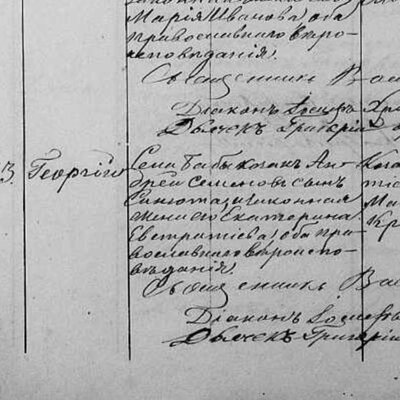 Марія Иванова, оба
православнаго вѣро-
исповѣданія.
Священникъ Вас
Діаконъ Іосифъ
Дьячекъ Григорій
3. Георгій Села Бабы козак Ан- Коза
дрей Семеновъ сынъ
и законная Ма
жена его Екатерина Кр
Евстратіева, оба пра-
вославнаго вѣроиспо-
вѣданія.
Священникъ Вас
Діаконъ Іосифъ
Дьячекъ Григорій